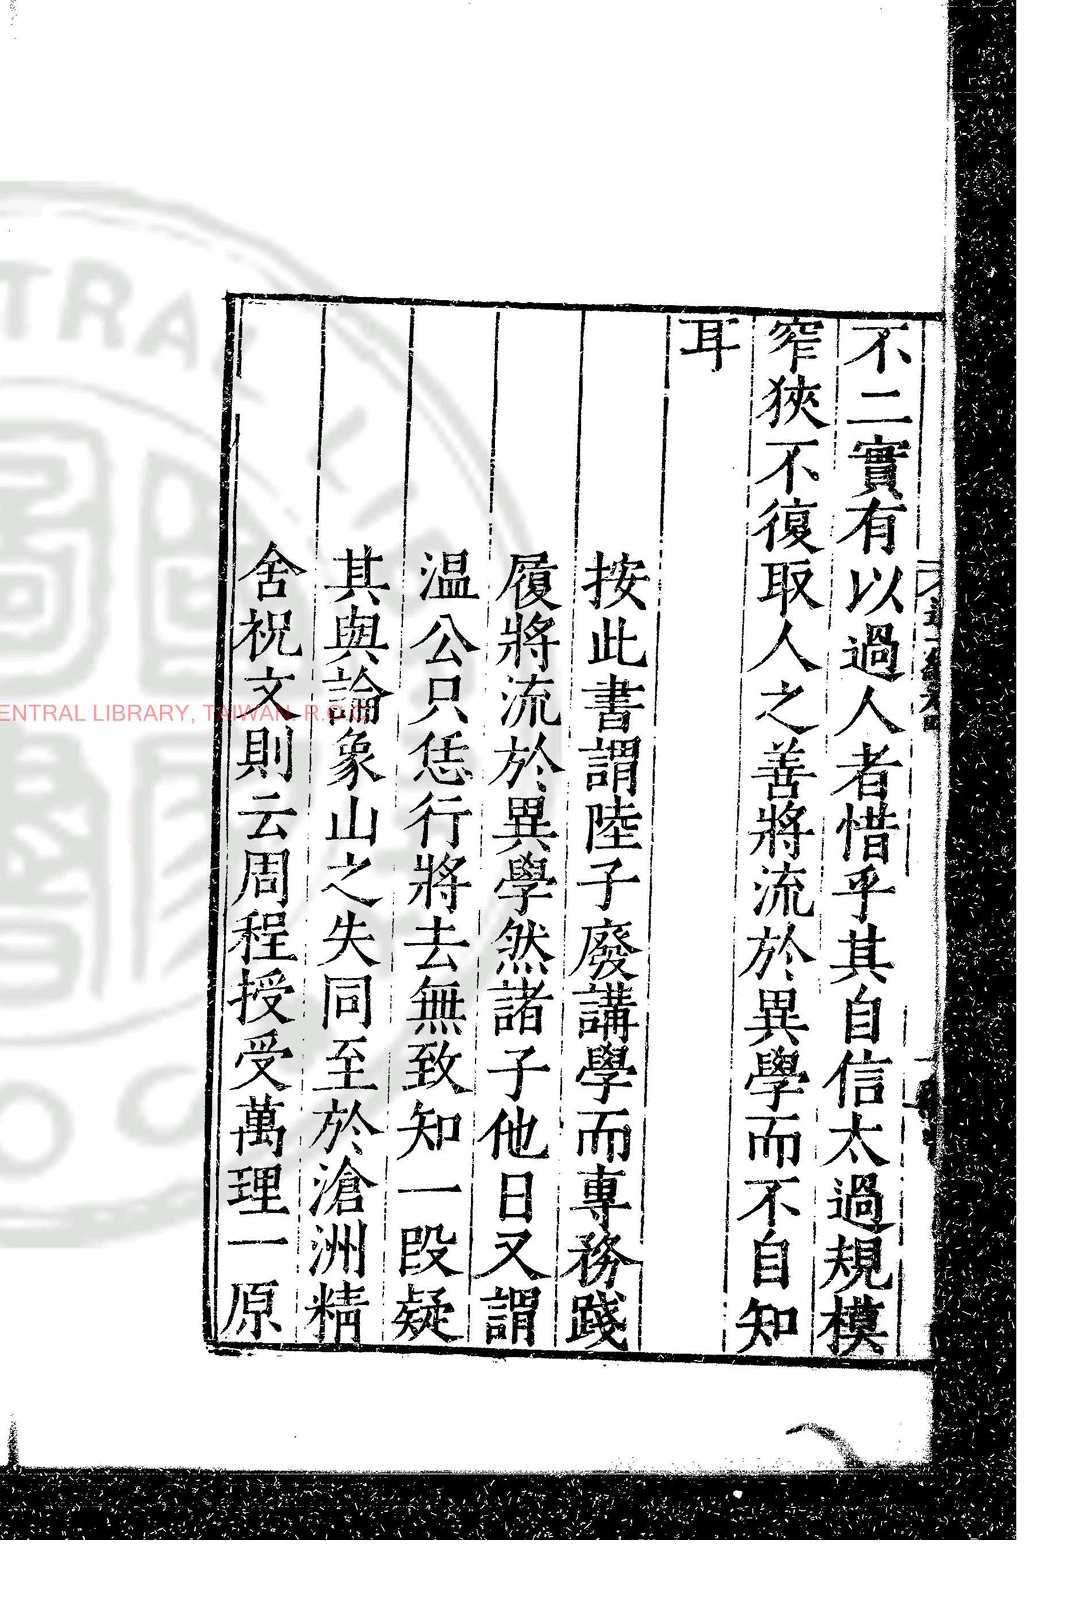 不二實有以過人者惜乎其自信太過規模
窄狹不復取人之善將流於異學而不自知
耳
按此書謂陸子廢講學而專務踐
履將流於異學然諸子他日又謂
温公只恁行將去無致知一段疑
其與論象山之失同至於滄洲精
舍祝文則云周程授受萬理一原
ENTRAL LIBRARY, TAIWAN R.O.C